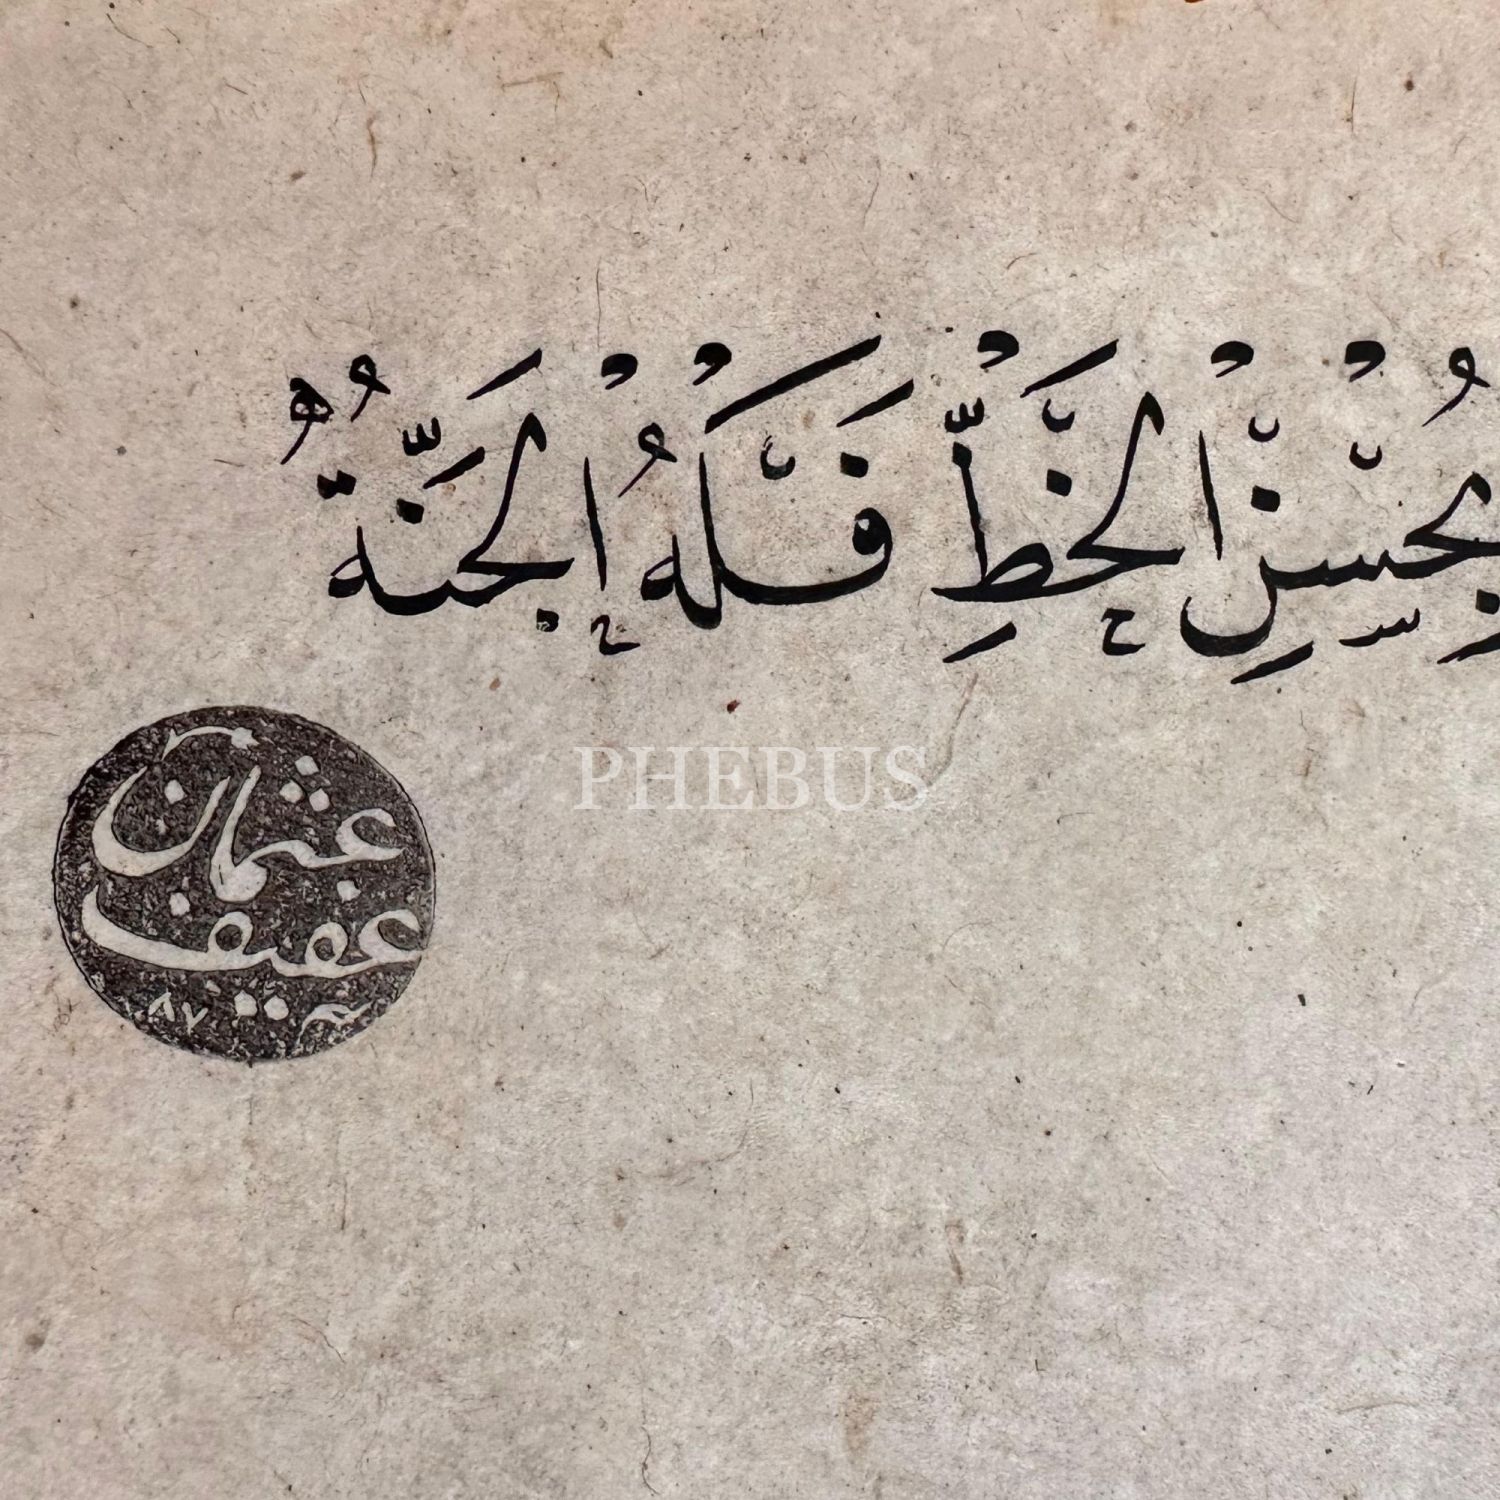 بِحُسْنِ الْخَطِّ فَلَهُ الْجَنَّةُ
PHEBUS
عثمان
عفيف
٨٧